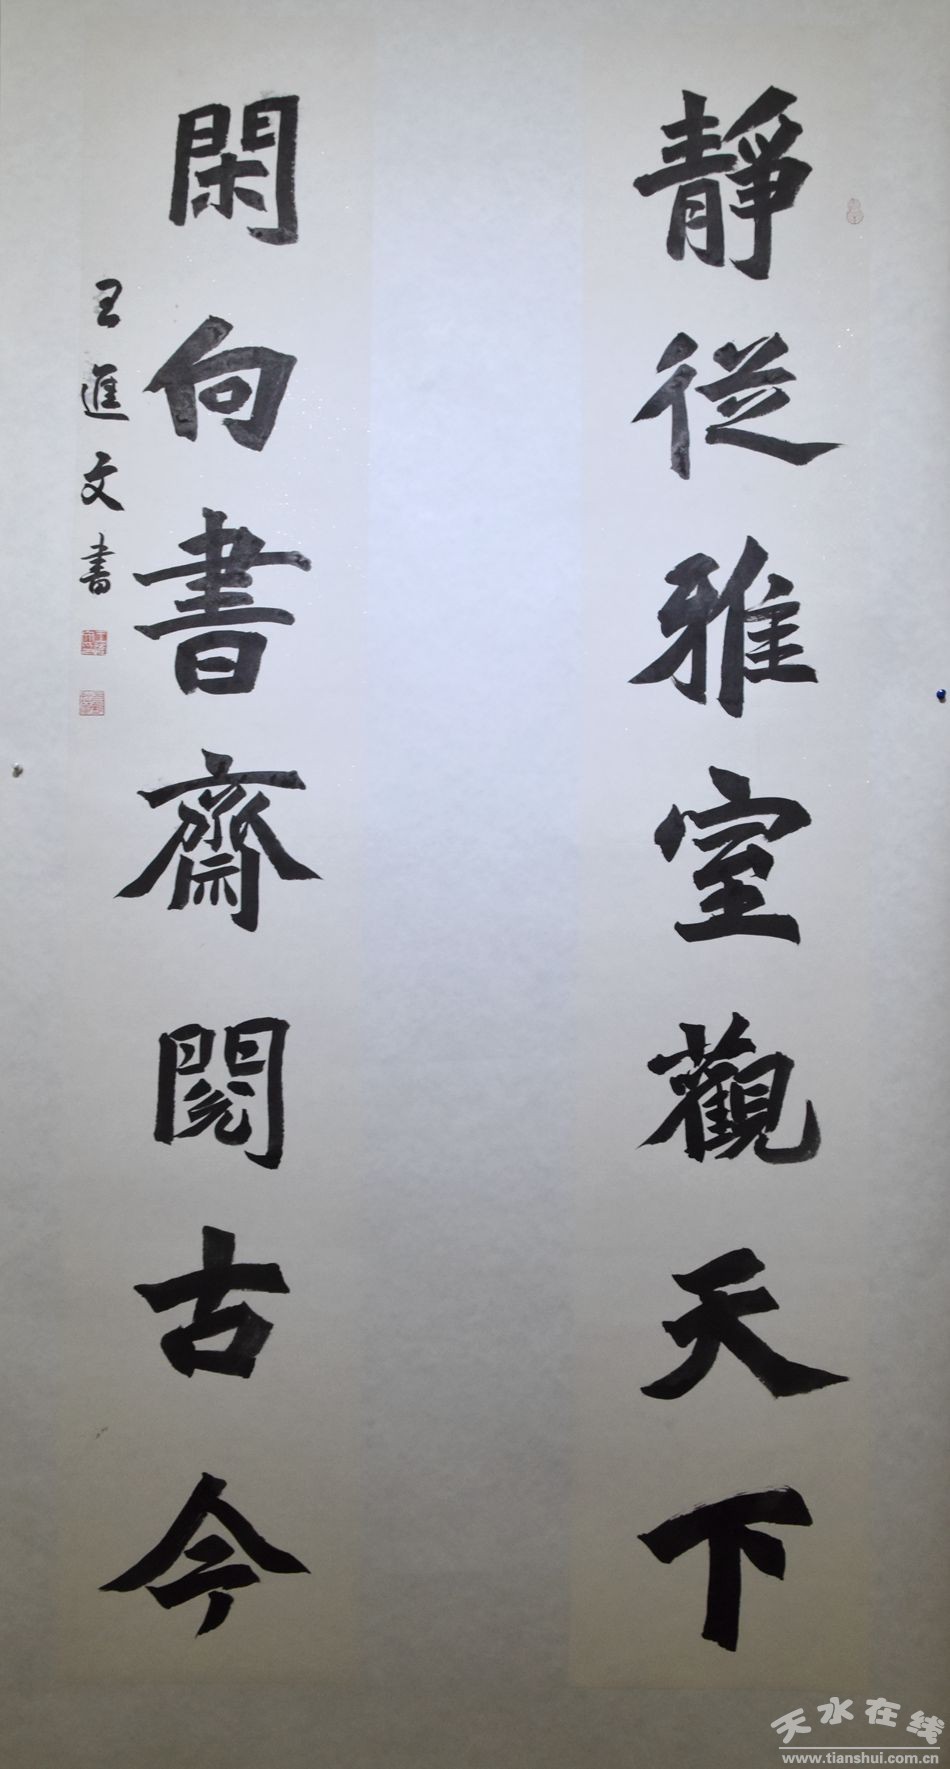 靜從雅室觀天下
閑向書齋閱古今
王進文書
天水在线
www.tianshui.com.cn